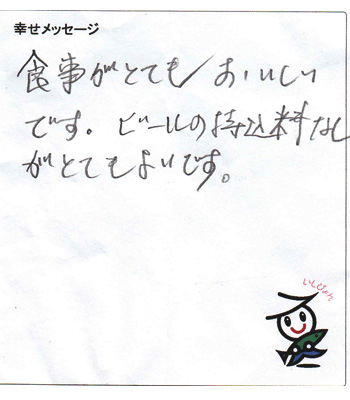 幸せメッセージ
食事がとてもおいしい
です。ビールの持込料なし
がとてもよいです。